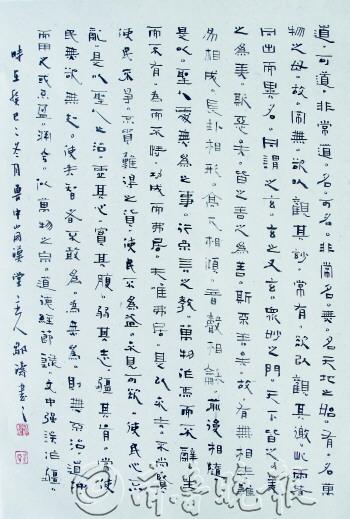 道。可道。非常道。名。可名。非常名。無。名天地之始。有。名萬
物之母。故常無。欲以觀其妙。常有。欲以觀其徼。此兩者
同出而異名。同謂之玄。玄之又玄。衆妙之門。天下皆知美
之為美。斯惡矣。皆知善之為善。斯不善矣。故有無相生。難
易相成。長短相形。高下相傾。音聲相龢。前後相隨
是以聖人處無為之事。行不言之教。萬物作焉而不辭。生
而不有。為而不恃。功成而弗居。夫唯弗居。是以不去。不尚賢
使民不爭。不貴難得之貨。使民不為盜。不見可欲。使民心不
亂。是以聖人之治。虛其心。實其腹。弱其志。疆其骨。常使
民無知無欲。使夫智者不敢為。為無為。則無不治。道沖
而用之或不盈。淵兮。似萬物之宗。道德經節錄 文中强誤作疆。
時在癸巳之冬月魯中山 堂主人 濤書
齊魯晚報